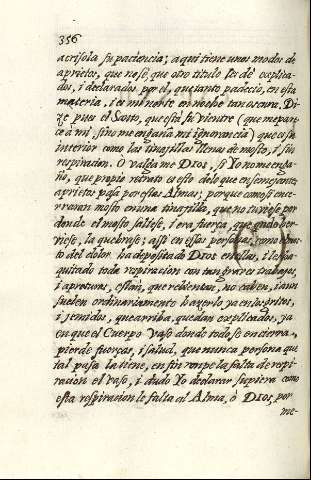 356
acrisola su paciencia; aqui tiene unos modos de
aprietos, que no sè, que otro titulo les dè explica-
dos, i declarados por el, que tanto padeciò, en esta
materia, i es mi norte en noche tan oscura. Di-
ze pues el Santo, que està su vientre (que me pare-
ce à mi, sino me engaña mi ignorancia) que es su
interior como las tinajillas llenas de mosto, i sin
respiracion. O valgame DIOS, si Yo no me enga-
ño, que propio retrato es esto de lo que en semejantes
aprietos pasa por estas Almas; porque como si ence-
rraran mosto en una tinajilla, que no tuviese por
donde el mosto saliese, i era fuerça, que quando her-
viese, la quebrase; assi en estas personas, como
to del dolor ha depositado DIOS en ellas, i les ha
quitado toda respiracion con tan graves trabajos,
i aprturas, estàn, que rebientan, no caben, i aun
suelen ordinariamente hazerlo ya en los gritos,
i jemidos, que arriba quedan explicados, ya
en que el Cuerpo Vaso donde todo se encierra,
pierde fuerças, i salud, que nunca persona que
tal pasa la tiene, en fin rompe la falta de respi-
racion el vaso, i dudo Yo declarar supiera como
esta respiracion le falta al Alma, ò DIOS, por
me-